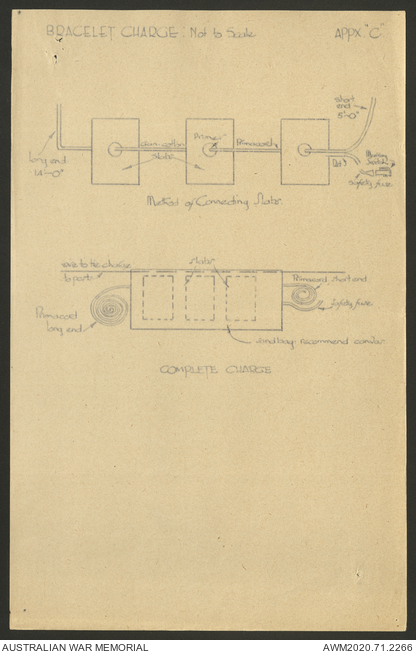 BRACELET CHARGE. Not to Scale
APPX "C"
short
end
5'-0"
long end
14'-0"
Gun-cotton
slabs
Primer
Primacord
Det
Safety fuse
Method of Connecting Slabs.
to posts
slabs
Primacord short end
Safety fuse
Primacord
long end
sandbag
COMPLETE CHARGE
AUSTRALIAN WAR MEMORIAL
AWM2020.71.2266